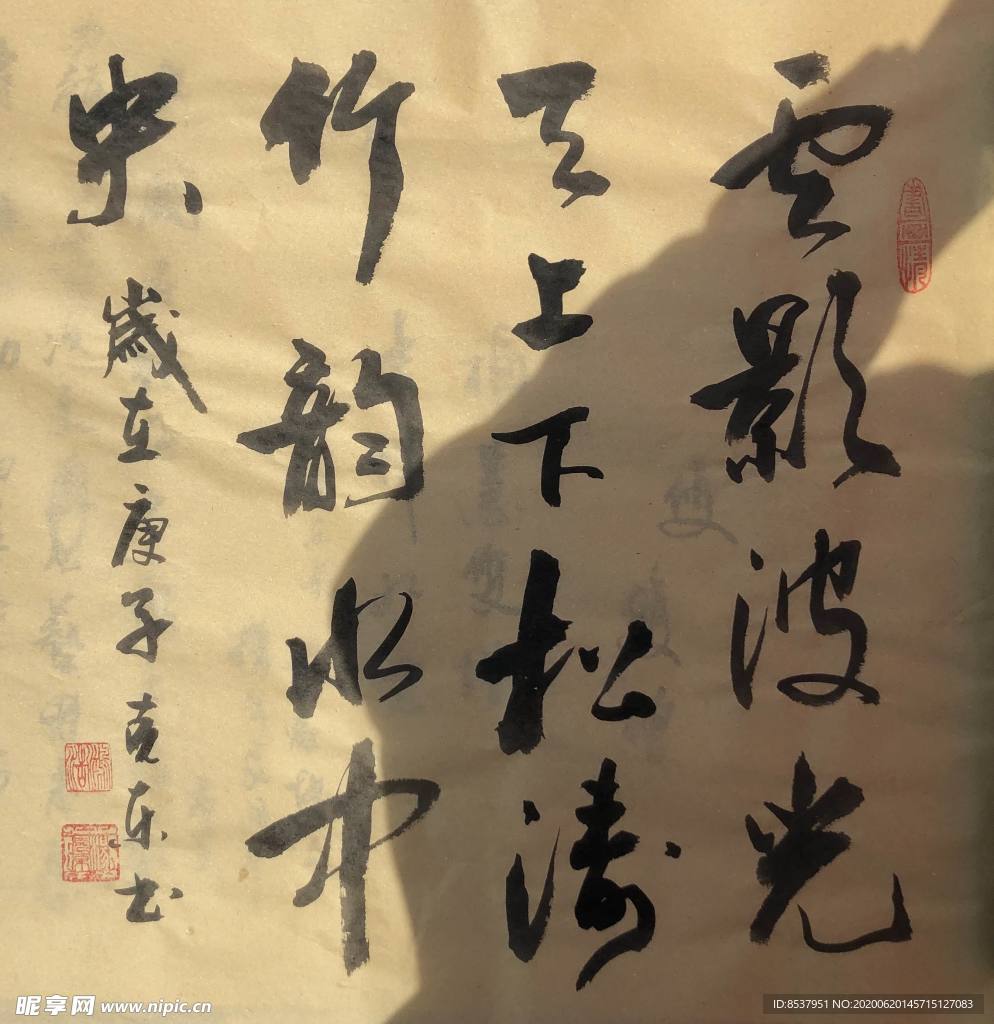 云影波光
天上下松涛
竹韵水中
央
歲在庚子克东书
昵享网 www.nipic.cn
ID:8537951 NO:20200620145715127083